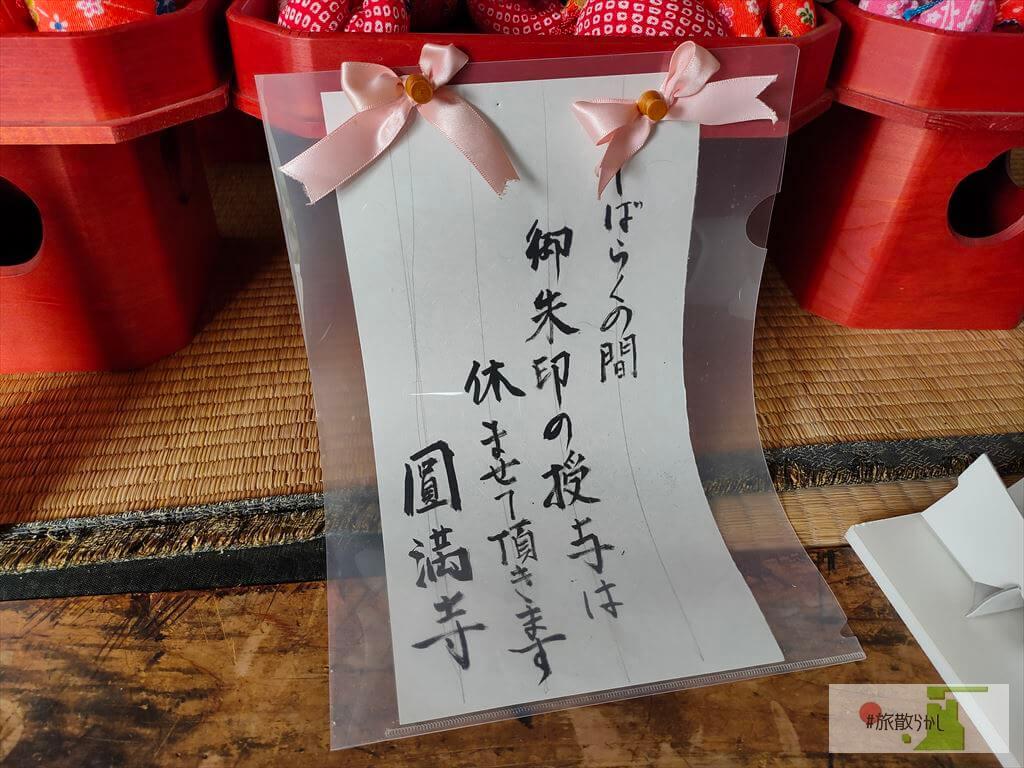 しばらくの間
御朱印の授与は
休ませて頂きます
圓満寺
#旅散らかし